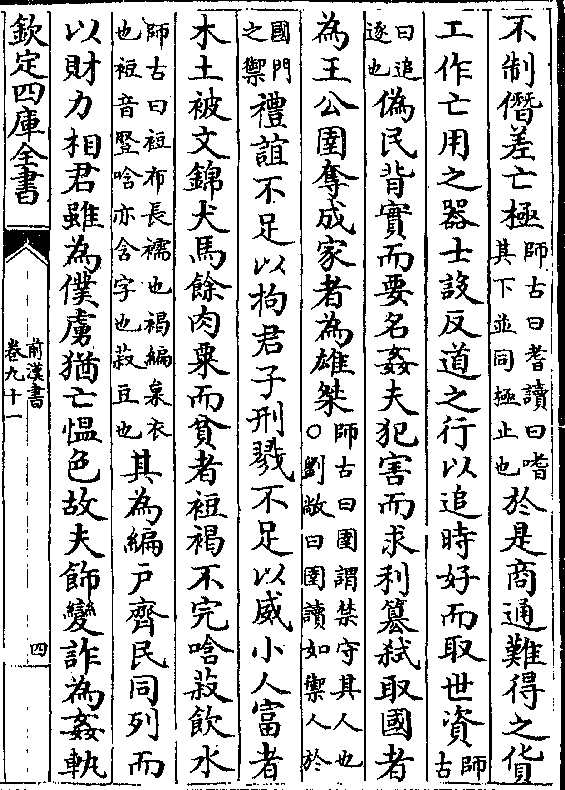 不制僭差亡極師古曰耆讀曰嗜其下並同極止也於是商通難得之貨
工作亡用之器士設反道之行以追時好而取世資師古
曰追逐也偽民背實而要名姦夫犯害而求利簒弑取國者
為王公圉奪成家者為雄桀師古曰圉謂禁守其人也○劉敞曰圉讀如禦人於
國門之禦禮誼不足以拘君子刑戮不足以威小人富者
木土被文錦犬馬餘肉粟而貧者裋褐不完唅菽飲水
師古曰裋布長襦也褐編枲衣也裋音豎唅亦含字也菽豆也其為編户齊民同列而
以財力相君雖為僕虜猶亡愠色故夫飾變詐為姦軌
欽定四庫全書
前漢書
卷九十一
四